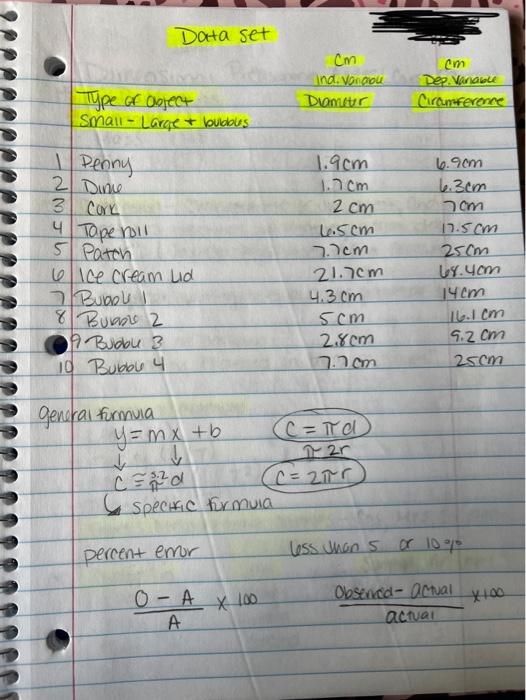 Data set
cm cm
Ind. Variable Dep. Variable
Type of object Diameter Circumference
Small - Large + bubbles
1 Penny 1.9cm 6.9cm
2 Dime 1.7cm 6.3cm
3 Cork 2cm 7cm
4 Tape roll 6.5cm 17.5cm
5 Patch 7.7cm 25cm
6 Ice cream Lid 21.7cm 68.4cm
7 Bubble 1 4.3cm 14cm
8 Bubble 2 5cm 16.1cm
9 Bubble 3 2.8cm 9.2cm
10 Bubble 4 7.7cm 25cm
general formula
y=mx+b C=πd
↓ ↓ π2r
C ≅ 3.2 d C=2πr
specific formula
percent error less than 5 or 10%
O - A x 100 Observed - actual x100
A actual